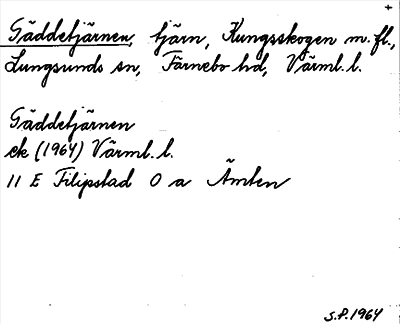 +
Gäddetjärnen, tjärn, Kungsskogen m.fl.,
Lungsunds sn, Färnebo hd, Värml. l.
Gäddetjärnen
ek (1964) Värml. l.
11 E Filipstad 0 a Ämten
S.P. 1964